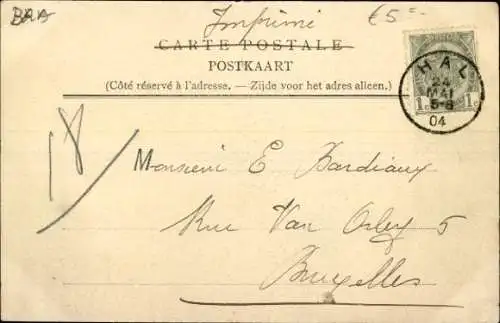 Imprimé
€5=
CARTE POSTALE
POSTKAART
(Côté réservé à l'adresse. — Zijde voor het adres alleen.)
HAL
24
MAI
5-6
04
1c 1c
18
Monsieur E Bardiaux
Rue Van Orley 5
Bruxelles